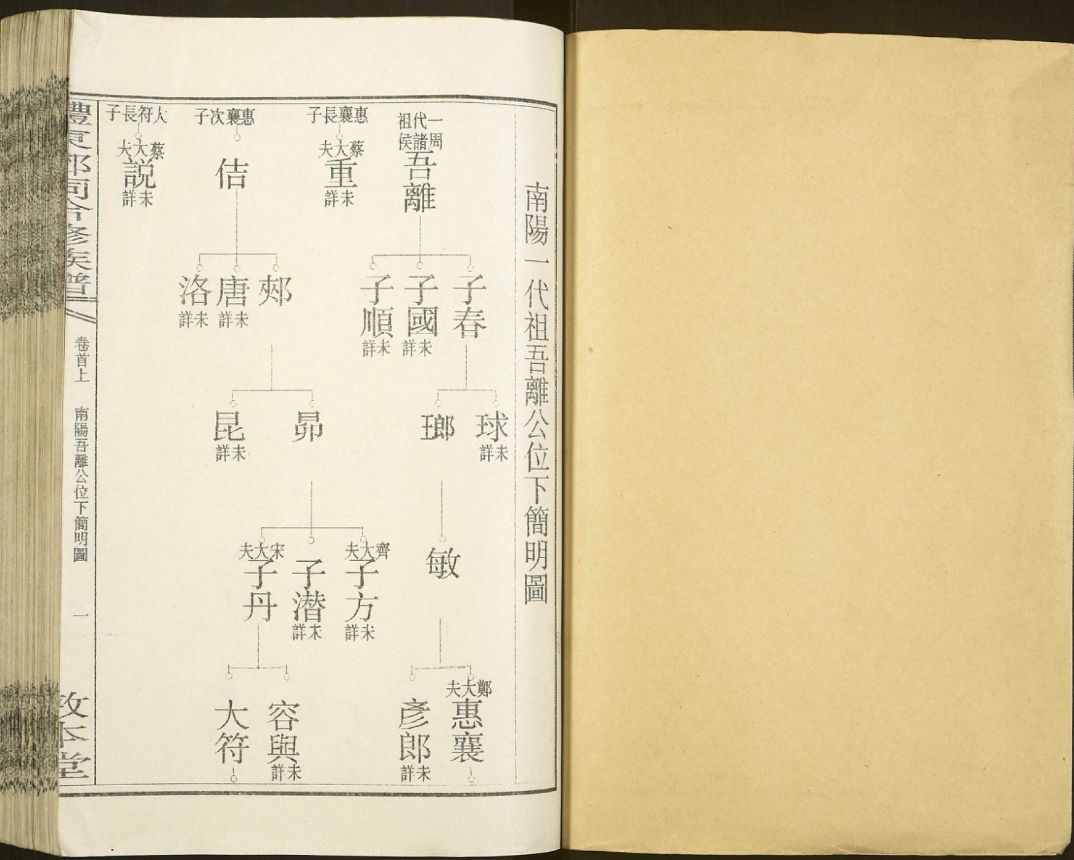 南陽一代祖吾離公位下簡明圖
一代祖
周諸侯
吾離
子春
子國
未詳
子順
未詳
球
未詳
瑯
敏
鄭大夫
惠襄
彥郎
未詳
惠襄長子
蔡大夫
重
未詳
惠襄次子
佶
郟
唐
未詳
洛
未詳
昴
昆
未詳
齊大夫
子方
未詳
子潛
未詳
宋大夫
子丹
容與
未詳
大符
大符長子
蔡大夫
説
未詳
卷首上
南陽吾離公位下簡明圖
一
敦本堂